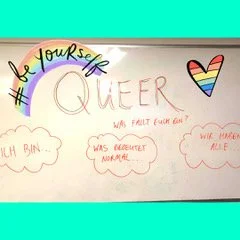 #be yourself
QUEER
WAS FÄLLT EUCH EIN?
ICH BIN...
WAS BEDEUTET
NORMAL...
WIR HABEN
ALLE...